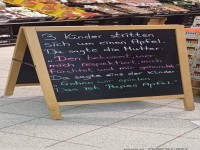 3 Kinder stritten
sich um einen Apfel.
Da sagte die Mutter:
"Den bekommt, wer
mich respektiert, mich
fürchtet und mir gehorcht!"
Da sagte eins der Kinder
gehen wir spielen.
Das ist Papas Apfel."